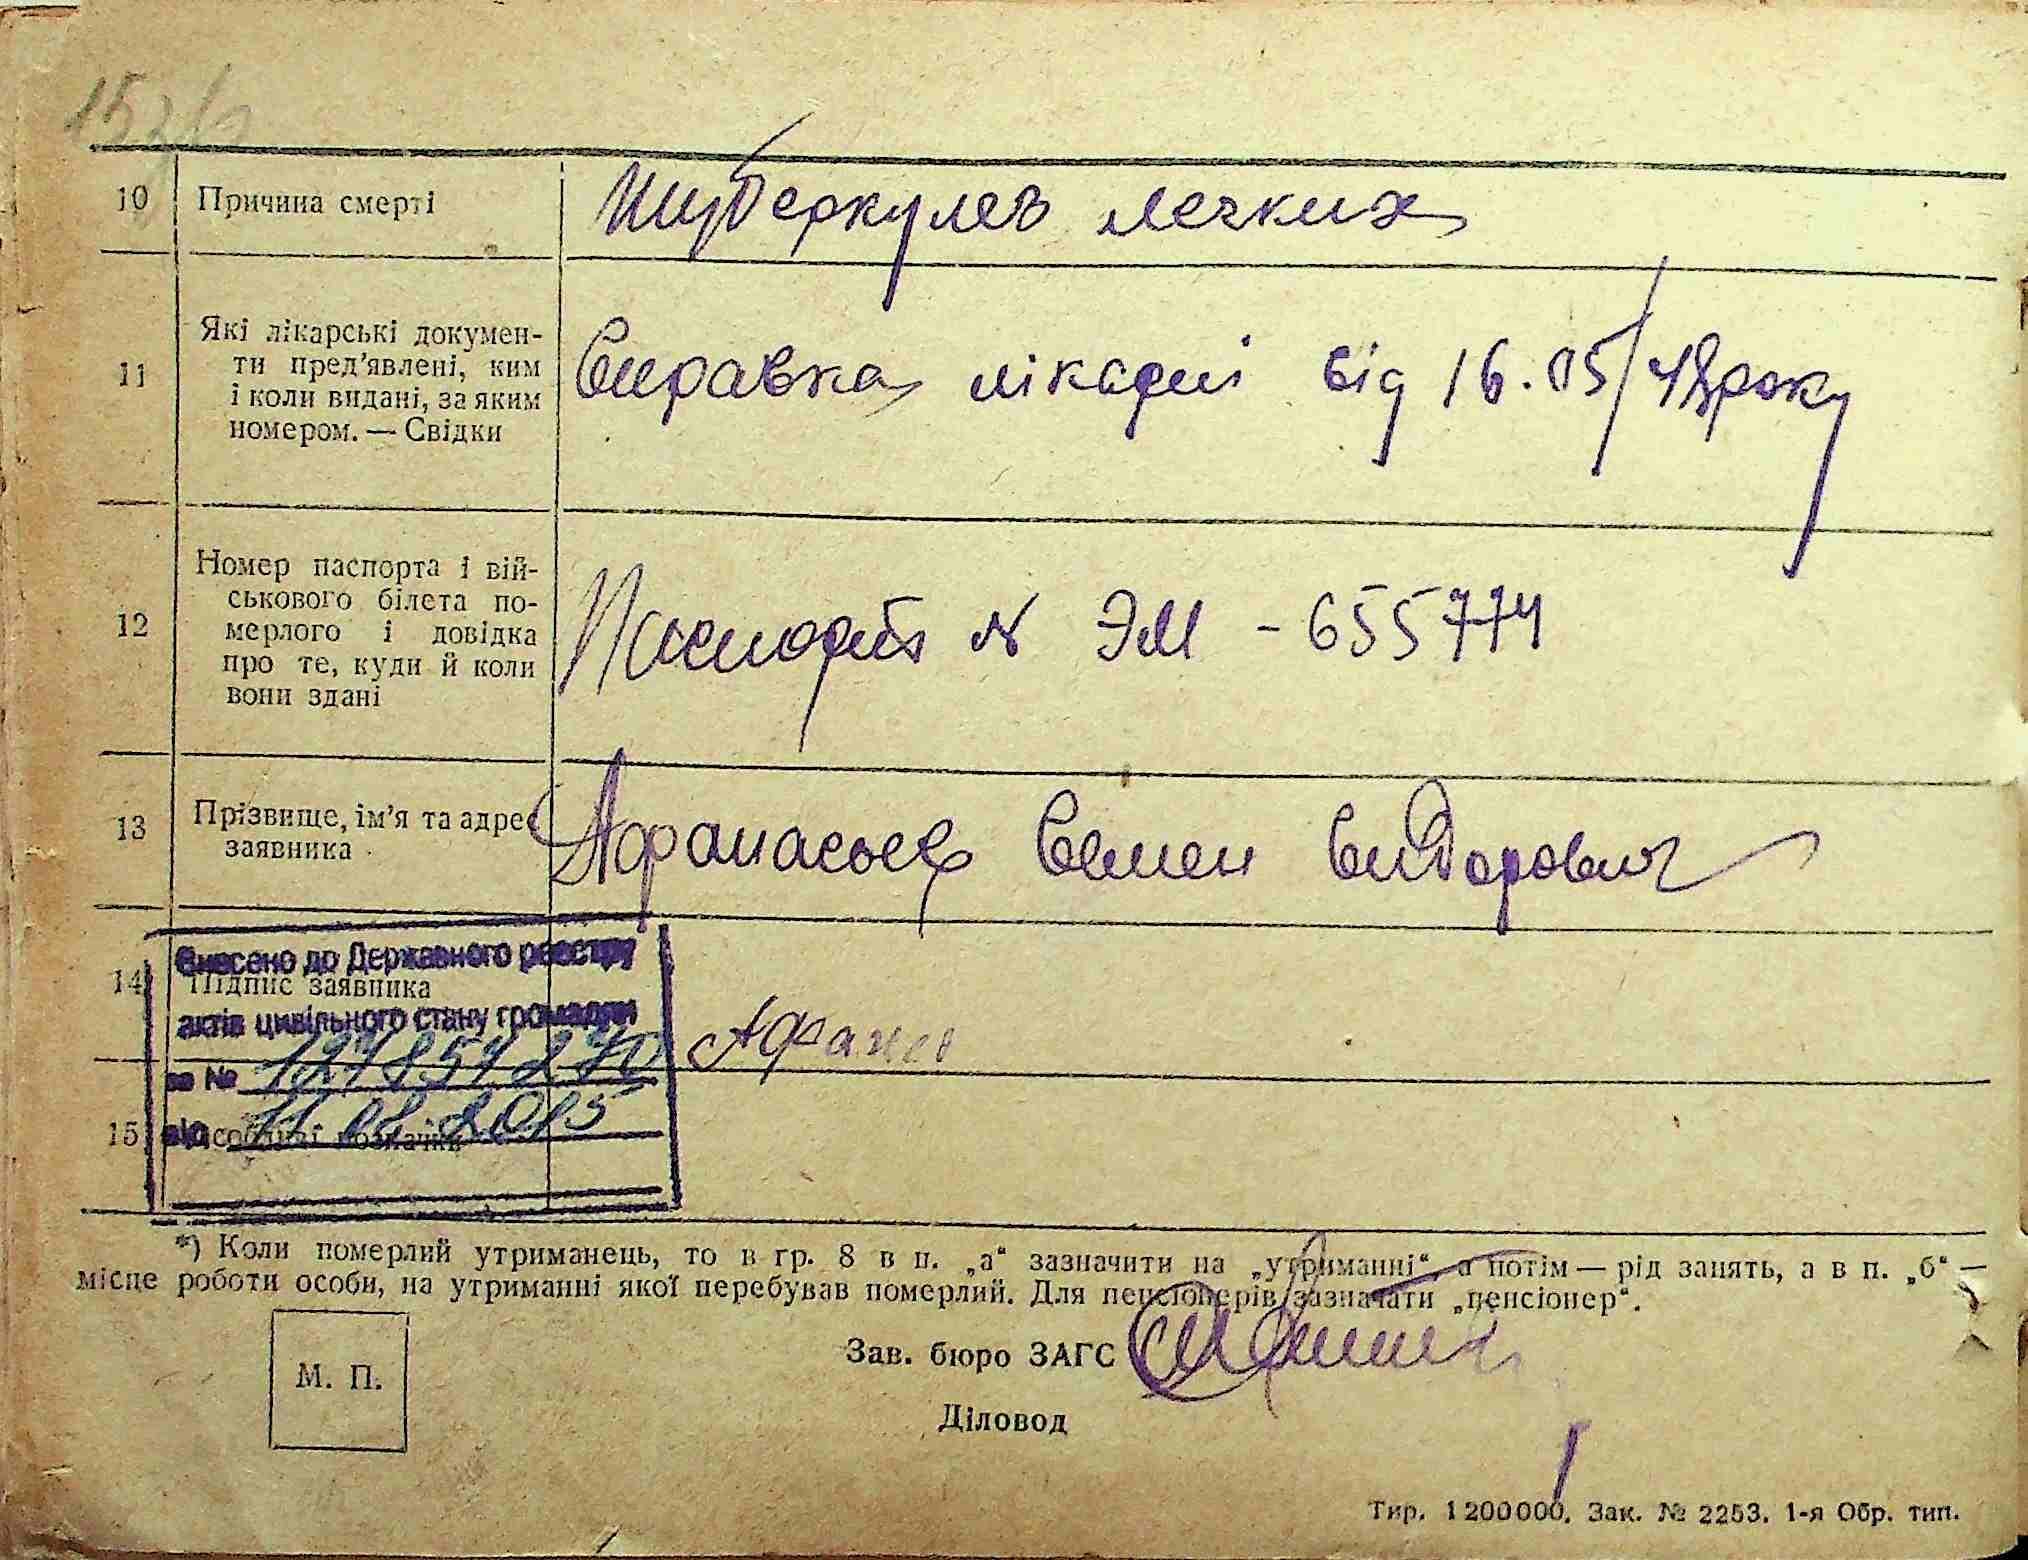 10 Причина смерті Туберкулез легких
11 Які лікарські докумен-
ти пред’явлені, ким
і коли видані, за яким
номером. — Свідки
Справка лікарні від 16.05/48 року
12 Номер паспорта і вій-
ськового білета по-
мерлого і довідка
про те, куди й коли
вони здані
Паспорт № ЭМ - 655774
13 Прізвище, ім’я та адрес
заявника
Афанасьев Семен Сидорович
14 Підпис заявника
Внесено до Державного реєстру
актів цивільного стану громадян
за №
від
15
*) Коли померлий утриманець, то в гр. 8 в п. „а“ зазначити на „утриманні“, а потім — рід занять, а в п. „б“ —
місце роботи особи, на утриманні якої перебував померлий. Для пенсіонерів зазначати „пенсіонер“.
М. П.
Зав. бюро ЗАГС
Діловод
Тир. 1200000. Зак. № 2253. 1-я Обр. тип.